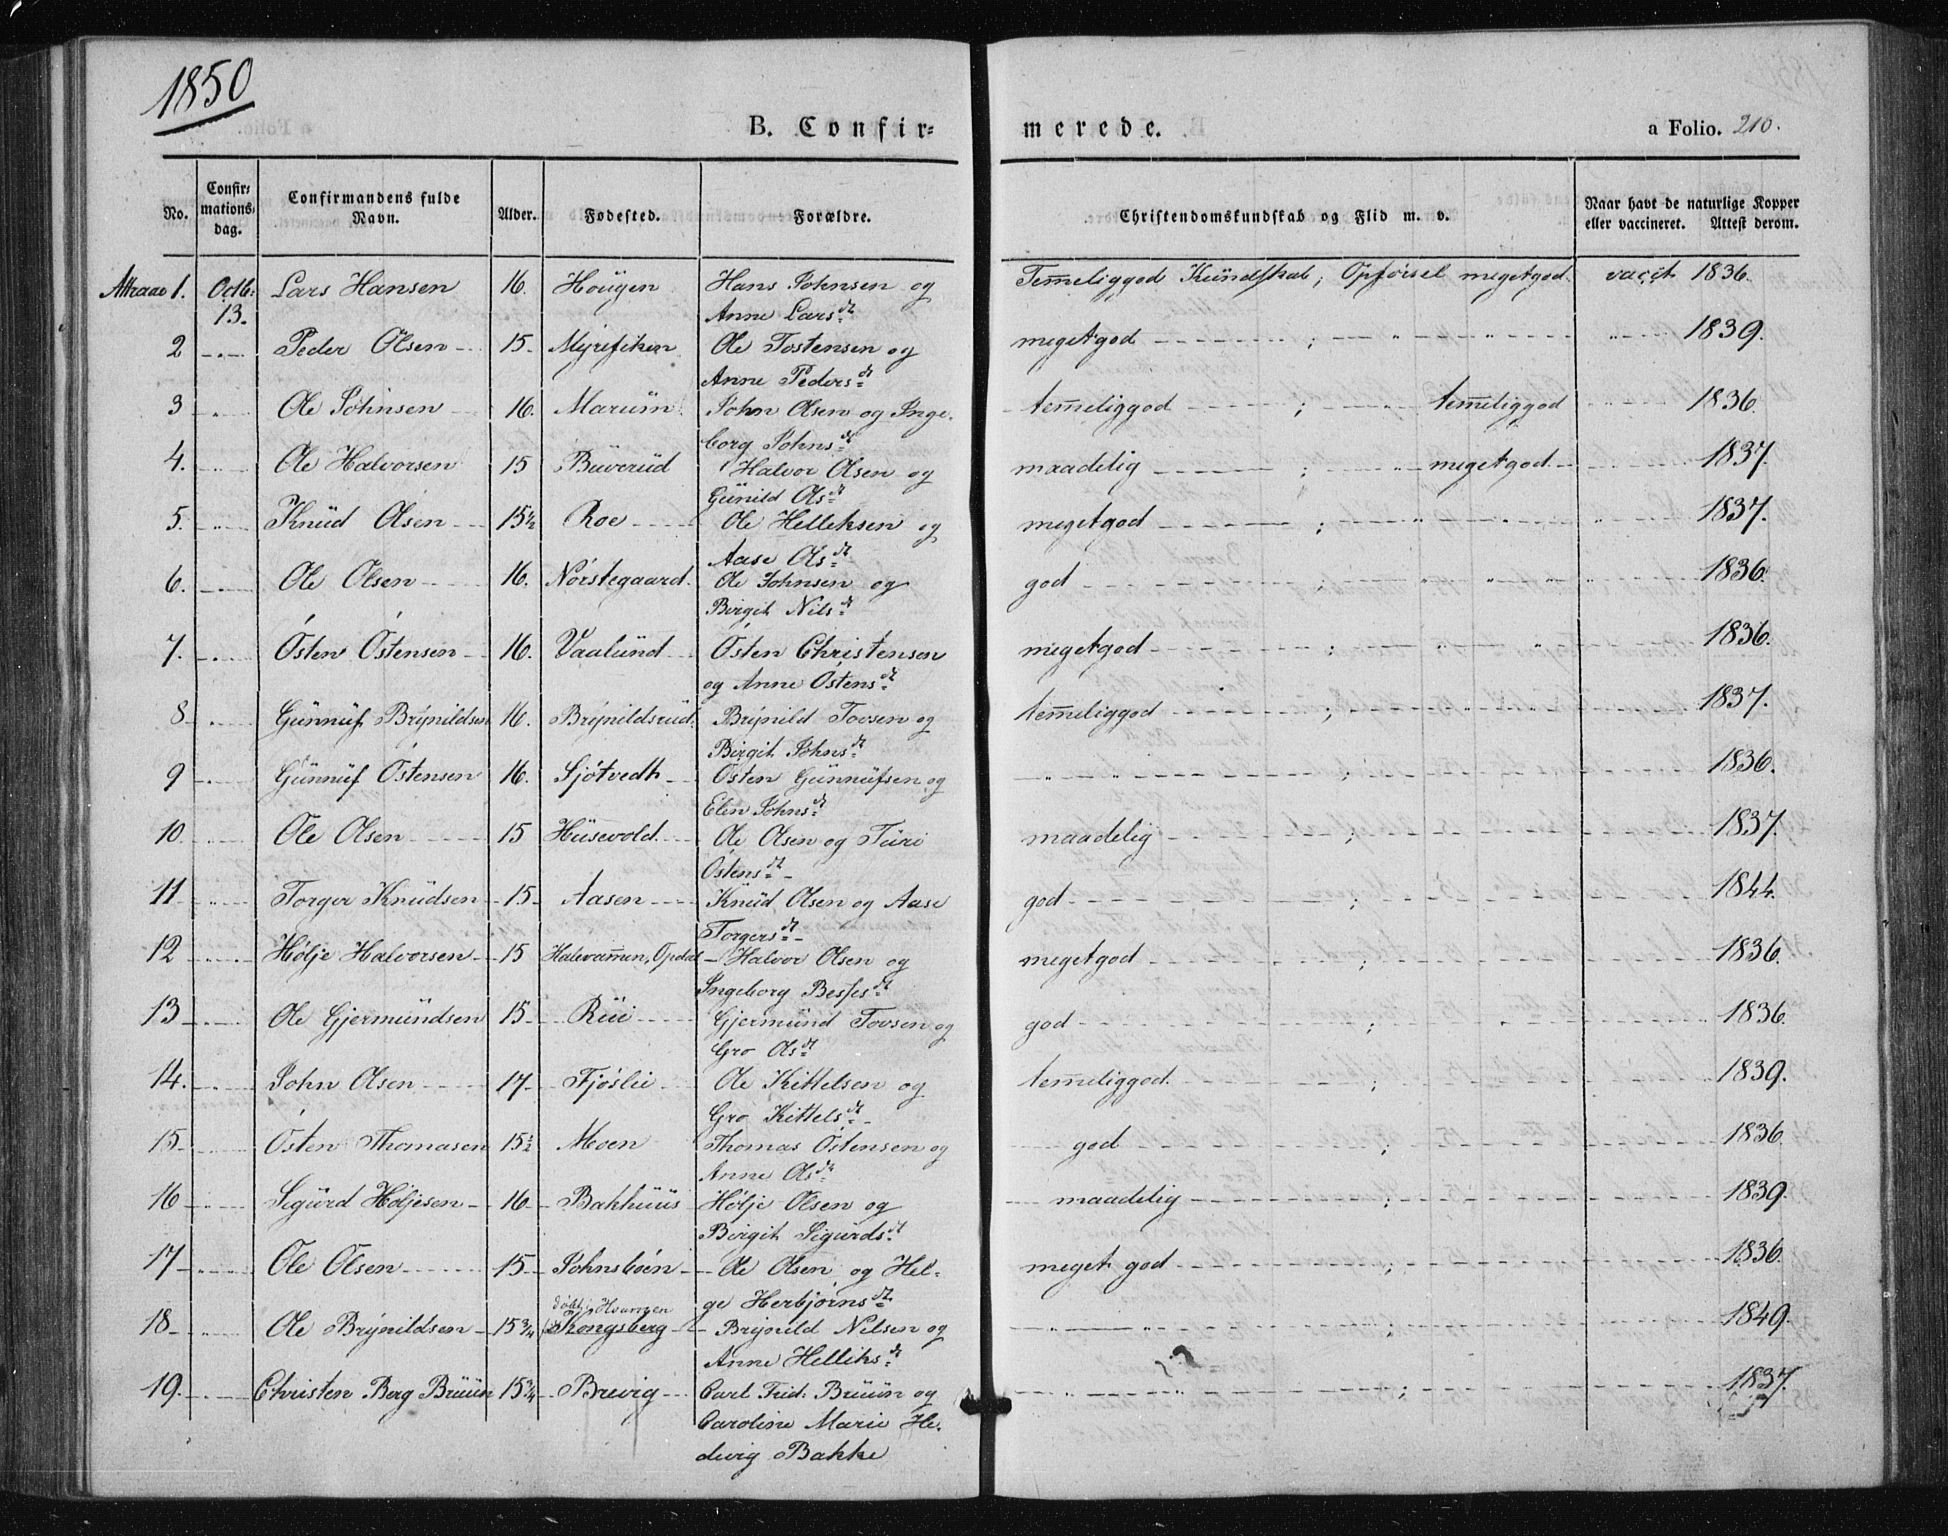 1850
B. Confir=
merede.
a Folio. 210.
No.
Confir=
mations=
dag.
Confirmandens fulde
Navn.
Alder.
Fødested.
Forældre.
Christendomskundskab og Flid m. v.
Naar havt de naturlige Kopper
eller vaccineret. Attest derom.
1. Octb: 13. Lars Hansen 16. Hougen Hans Johnsen og Temeliggod Kundskab; Opførsel megetgod. vacct 1836.
Anne Larsdt
2 Peder Olsen 15 Ole Tostensen og megetgod ; " " " 1839.
Anne Pedersdt
3 " Ole Johnsen 16. Marum John Olsen og Inge= temeliggod ; " temeliggod 1836.
borg Johnsdt
4. Ole Halvorsen 15 Buverud Halvor Olsen og maadelig ; " megetgod 1837.
Gunild Olsdt
5. Knud Olsen 15½ Roe Ole Helleksen og megetgod ; " " 1837.
Aase Olsdt
6. Ole Olsen 16. Nørstegaard Ole Johnsen og god ; " " 1836.
Birgit Nilsdt
7. Østen Østensen 16. Vaalund Østen Christensen megetgod ; " " 1836.
og Anne Østensdt
8 Gunnuf Brynildsen 16. Brynildsrud Brynild Tovsen og temeliggod ; 1837.
Birgit Johnsdt
9 Gunnuf Østensen 16. Sjøtvedt Østen Gunnufsen og " " ; 1836.
Elen Johnsdt
10 Ole Olsen 15 Husevold Ole Olsen og Turi maadelig ; 1837.
Østensdt
11 Torger Knudsen 15 Aasen Knud Olsen og Aase god ; 1844.
Torgersdt
12 Holje Halvorsen 15 Opdal Halvor Olsen og megetgod 1836.
Ingeborg Bessesdt
13 Ole Gjermundsen 15 Rui Gjermund Tovsen og god ; 1836.
Gro Olsdt
14. John Olsen 17 Fjøslie Ole Kittelsen og temeliggod ; 1839.
Gro Kittelsdt
15 Østen Thomasen 15½ Moen Thomas Østensen og god ; 1836.
Anne Olsdt
16 Sigurd Holjesen 16 Bakhuus Holje Olsen og maadelig ; 1839.
Birgit Sigurdsdt
17 Ole Olsen 15 Johnsbøen Ole Olsen og Hel= meget god ; 1836.
ge Herbjørnsdt
18 Ole Brynildsen 15¾ Kongsberg Brynild Nilsen og " ; 1849.
Anne Helliksdt
19. Christen Berg Bruun 15¾ Brevig Carl Frid: Bruun og " " ; 1837.
Caroline Marie He=
dvig Bakke